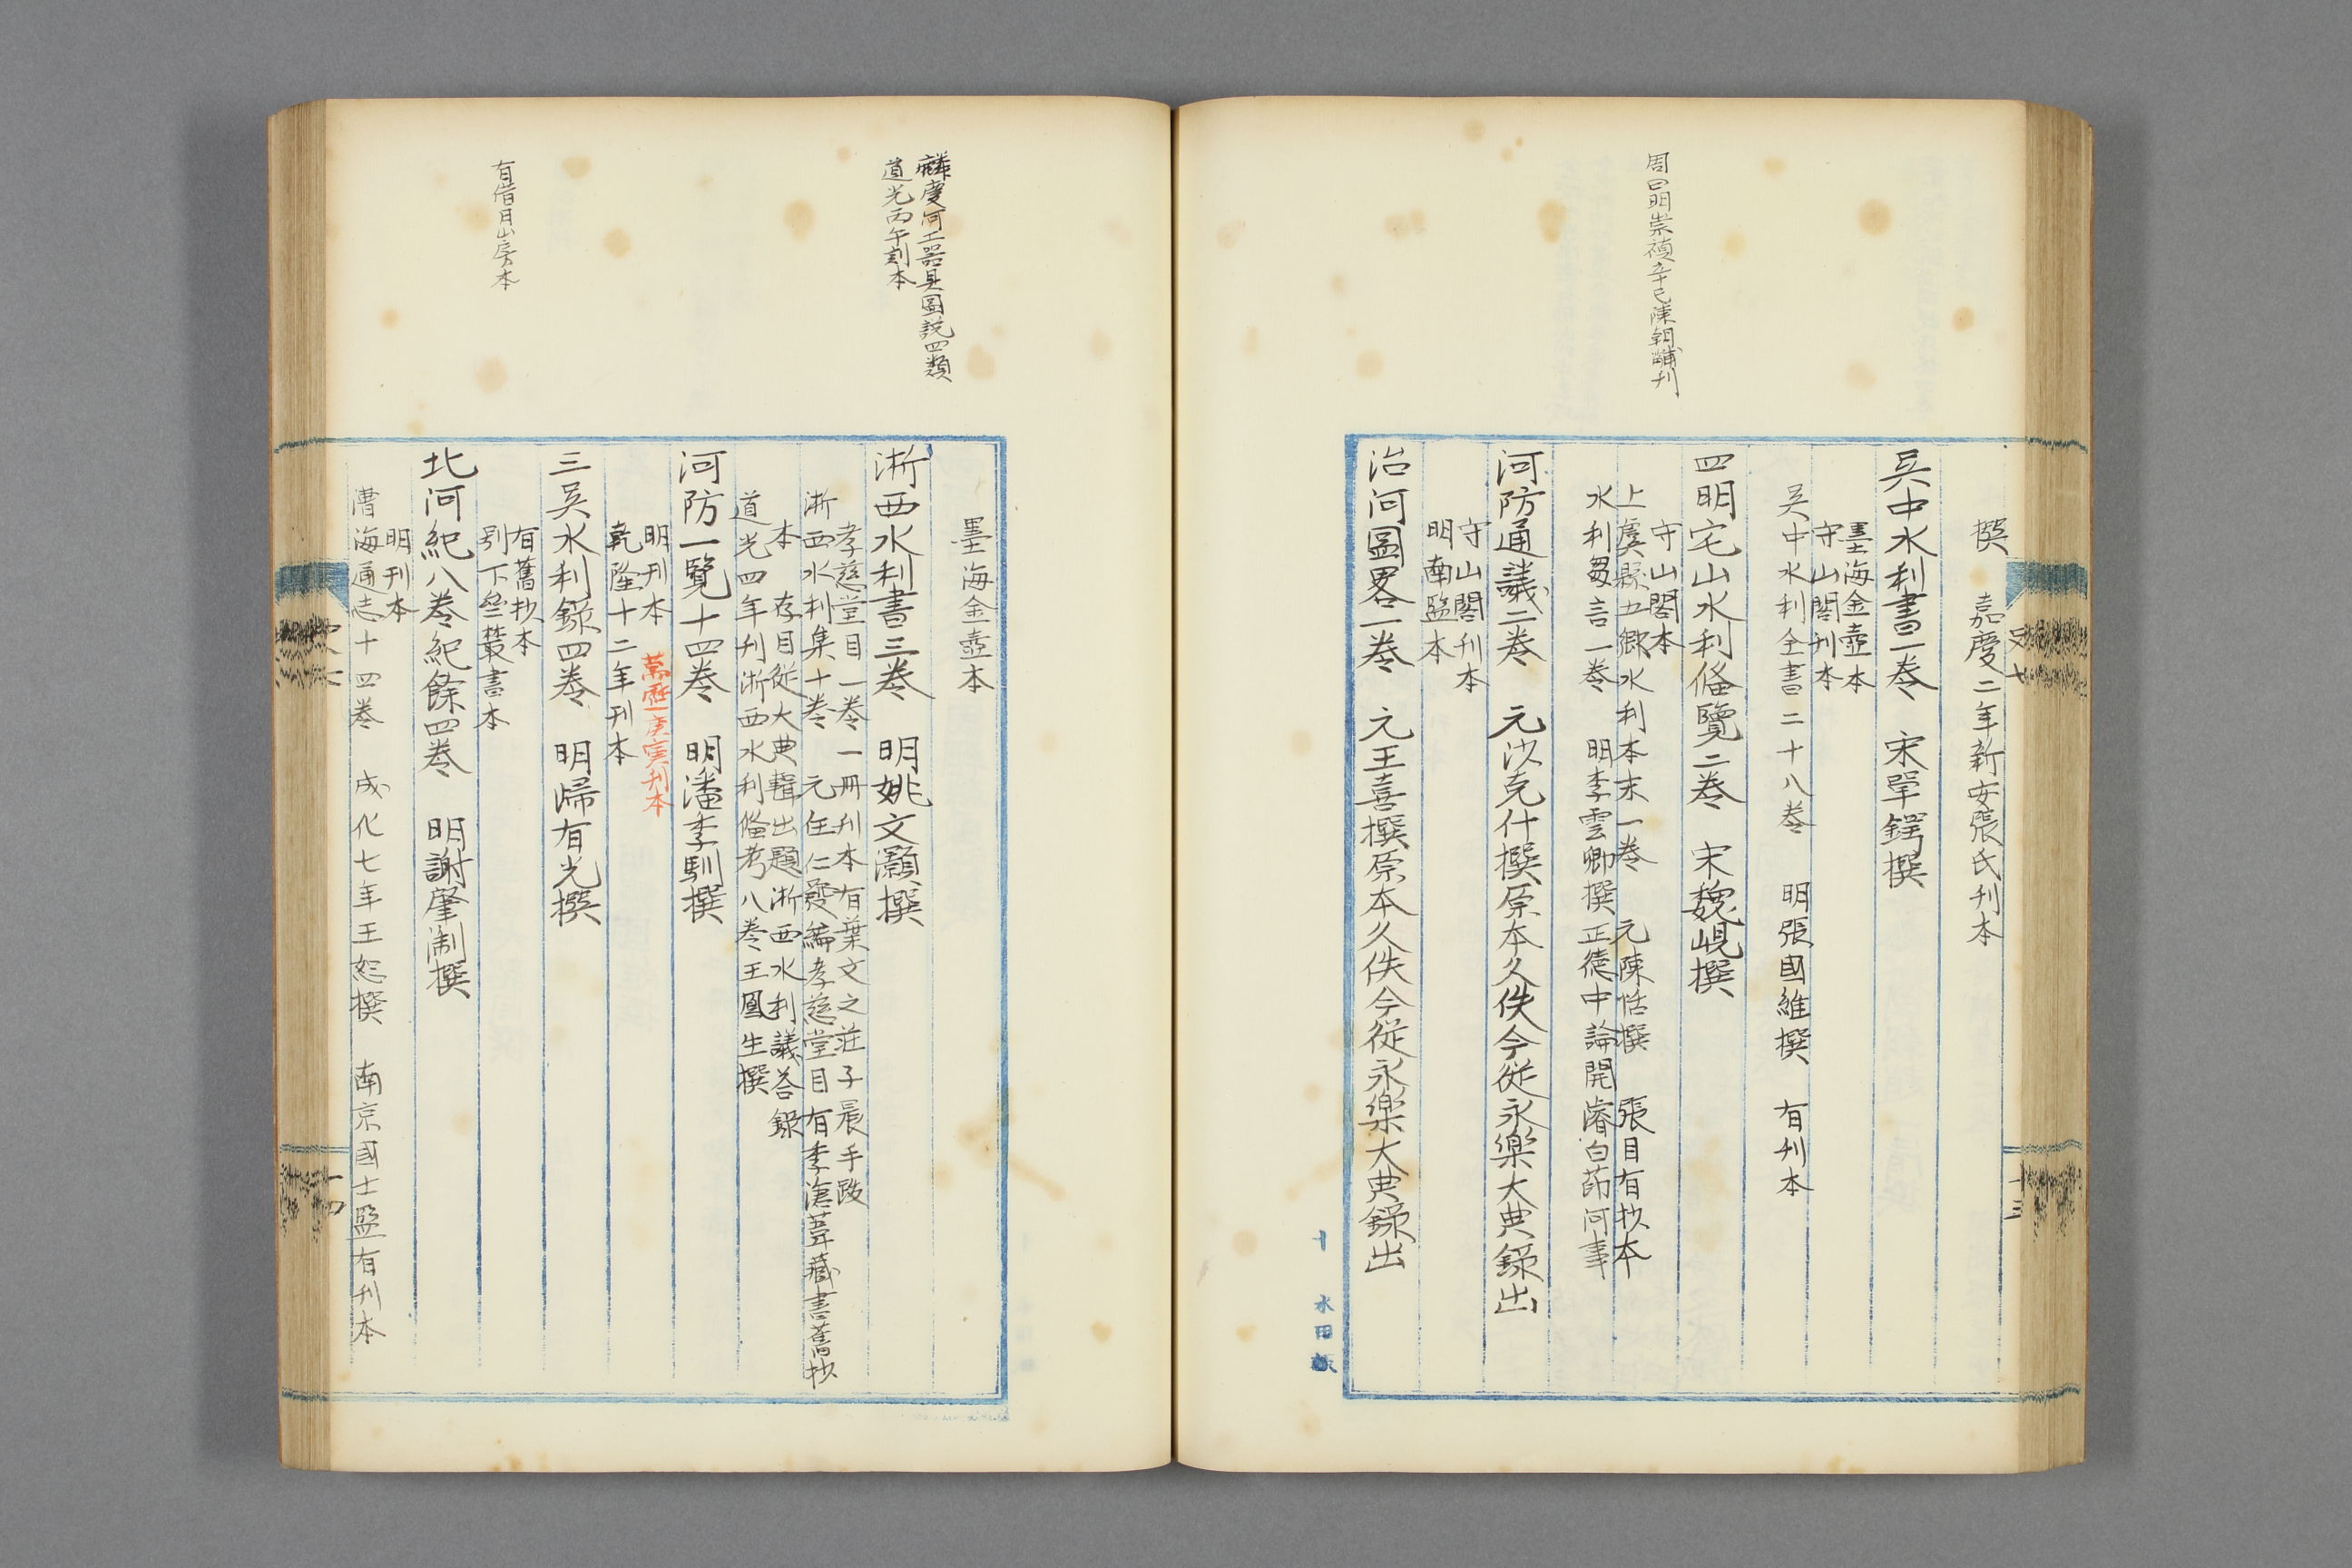 周四明崇禎辛巳陳朝輔刊
撰　嘉慶二年新安張氏刊本
吳中水利書一卷　宋單鍔撰
墨海金壺本
守山閣刊本
吳中水利全書二十八卷　明張國維撰　有刊本
四明它山水利備覽二卷　宋魏峴撰
守山閣本
上虞縣五鄉水利本末一卷　元陳恬撰　張目有抄本
水利芻言一卷　明李雲卿撰正德中論開濬白茆河事
河防通議二卷　元沙克什撰原本久佚今從永樂大典錄出
守山閣刊本
明南監本
治河圖畧一卷　元王喜撰原本久佚今從永樂大典錄出
史七
十三
麟慶河工器具圖說四類
道光丙午刻本
有借月山房本
墨海金壺本
浙西水利書三卷　明姚文灝撰
孝慈堂目一卷一冊刊本有葉文之莊子晨手跋
浙西水利集十卷　元任仁發編孝慈堂目有季滄葦藏書舊抄
本　存目從大典輯出題浙西水利議答錄
道光四年刊浙西水利備考八卷王鳳生撰
河防一覽十四卷　明潘季馴撰
明刊本　萬歷庚寅刊本
乾隆十二年刊本
三吳水利錄四卷　明歸有光撰
有舊抄本
別下叢書本
北河紀八卷紀餘四卷　明謝肇淛撰
明刊本
漕海通志十四卷　成化七年王恕撰　南京國士監有刊本
十四